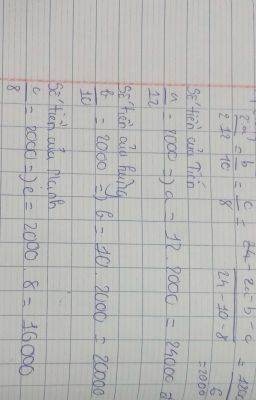 2a/2.12 = b/10 = c/8 = 2a-b-c/24-10-8 = 12000/6
= 2000
Số tiền của Tiến
a/12 = 2000 => a = 12.2000 = 24000
Số tiền của hùng
b/10 = 2000 => b = 10.2000 = 20000
Số tiền của Mạnh
c/8 = 2000 => c = 2000.8 = 16000